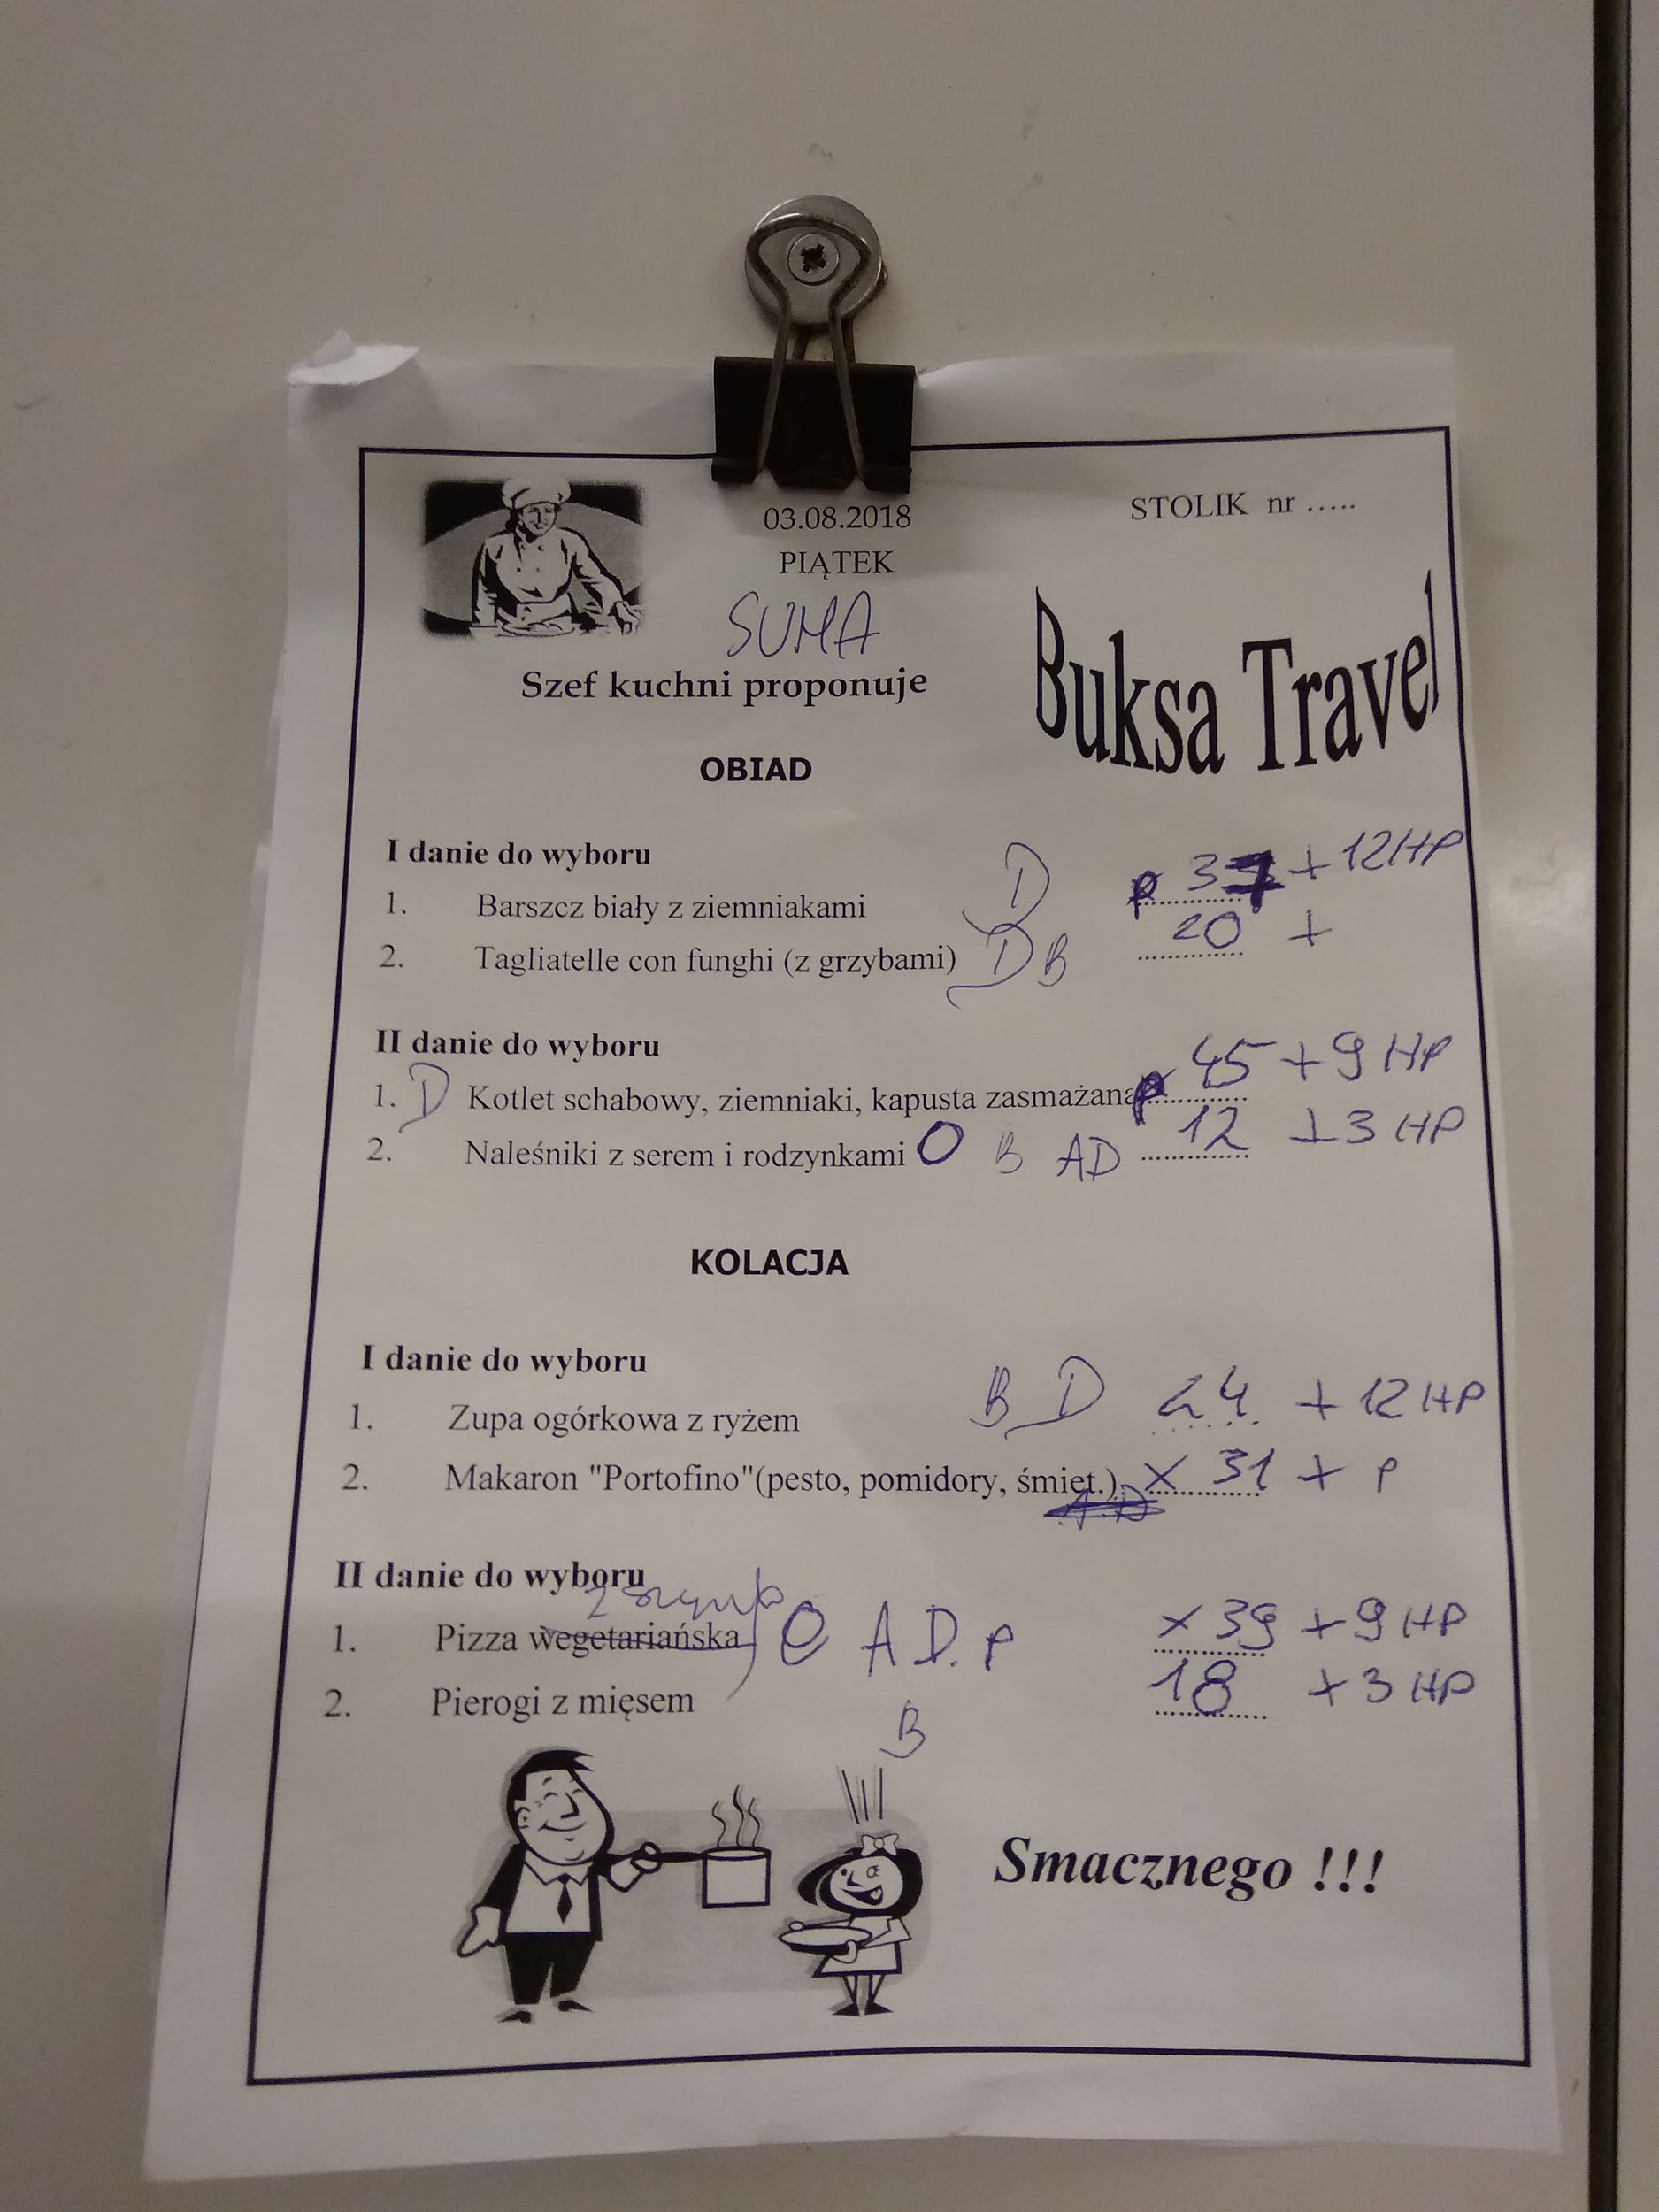 03.08.2018
STOLIK nr .....
PIĄTEK
SUMA
Szef kuchni proponuje
Buksa Travel
OBIAD
I danie do wyboru
1. Barszcz biały z ziemniakami D p 37 + 12 HP
2. Tagliatelle con funghi (z grzybami) D B 20 +
II danie do wyboru
1. D Kotlet schabowy, ziemniaki, kapusta zasmażana p 45 + 9 HP
2. Naleśniki z serem i rodzynkami O B AD 12 + 3 HP
KOLACJA
I danie do wyboru
1. Zupa ogórkowa z ryżem B D 24 + 12 HP
2. Makaron "Portofino"(pesto, pomidory, śmiet.) X 31 + P
II danie do wyboru
1. Pizza wegetariańska O A D. P x 39 + 9 HP
2. Pierogi z mięsem B 18 + 3 HP
Smacznego !!!